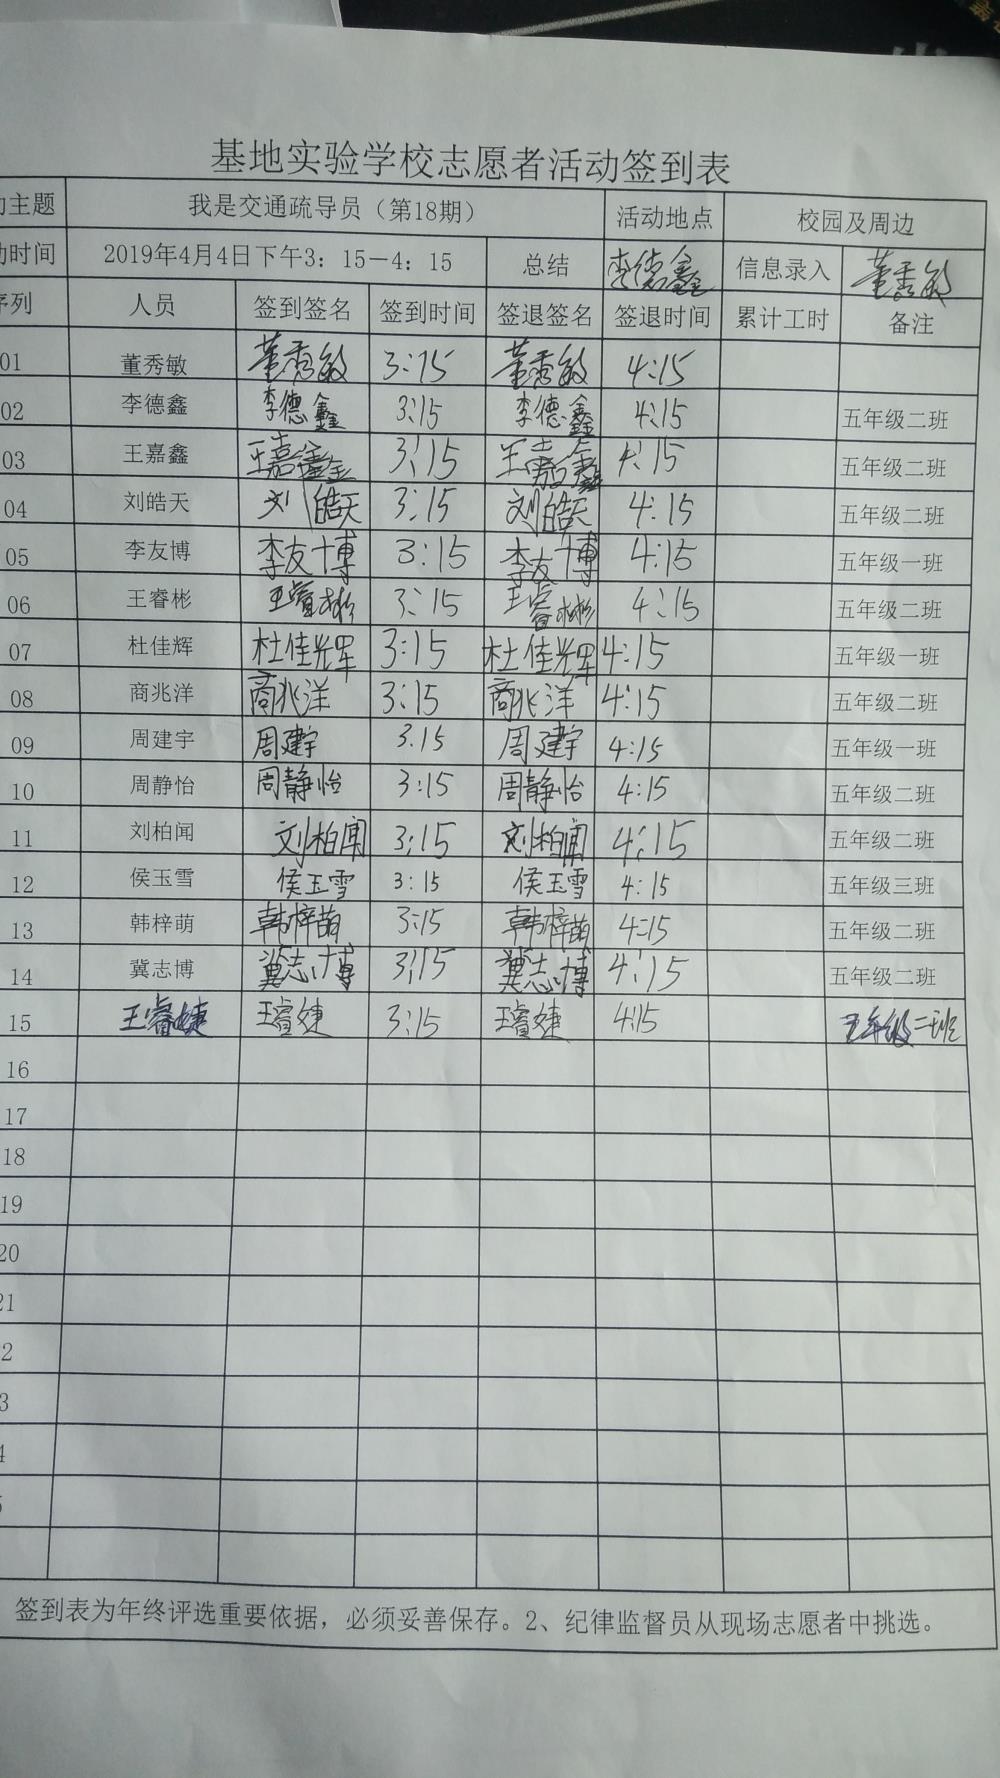 基地实验学校志愿者活动签到表
动主题 我是交通疏导员（第18期） 活动地点 校园及周边
动时间 2019年4月4日下午3：15－4：15 总结 李德鑫 信息录入 董秀敏
序列 人员 签到签名 签到时间 签退签名 签退时间 累计工时 备注
01 董秀敏 董秀敏 3:15 董秀敏 4:15
02 李德鑫 李德鑫 3:15 李德鑫 4:15 五年级二班
03 王嘉鑫 王嘉鑫 3:15 王嘉鑫 4:15 五年级二班
04 刘皓天 刘皓天 3:15 刘皓天 4:15 五年级二班
05 李友博 李友博 3:15 李友博 4:15 五年级一班
06 王睿彬 王睿彬 3:15 王睿彬 4:15 五年级二班
07 杜佳辉 杜佳辉 3:15 杜佳辉 4:15 五年级一班
08 商兆洋 商兆洋 3:15 商兆洋 4:15 五年级二班
09 周建宇 周建宇 3.15 周建宇 4:15 五年级一班
10 周静怡 周静怡 3:15 周静怡 4:15 五年级二班
11 刘柏闻 刘柏闻 3:15 刘柏闻 4:15 五年级二班
12 侯玉雪 侯玉雪 3:15 侯玉雪 4:15 五年级三班
13 韩梓萌 韩梓萌 3:15 韩梓萌 4:15 五年级二班
14 冀志博 冀志博 3:15 冀志博 4:15 五年级二班
15 王睿婕 王睿婕 3:15 王睿婕 4:15 五年级二班
16
17
18
19
20
21
2
3
4
5
签到表为年终评选重要依据，必须妥善保存。2、纪律监督员从现场志愿者中挑选。